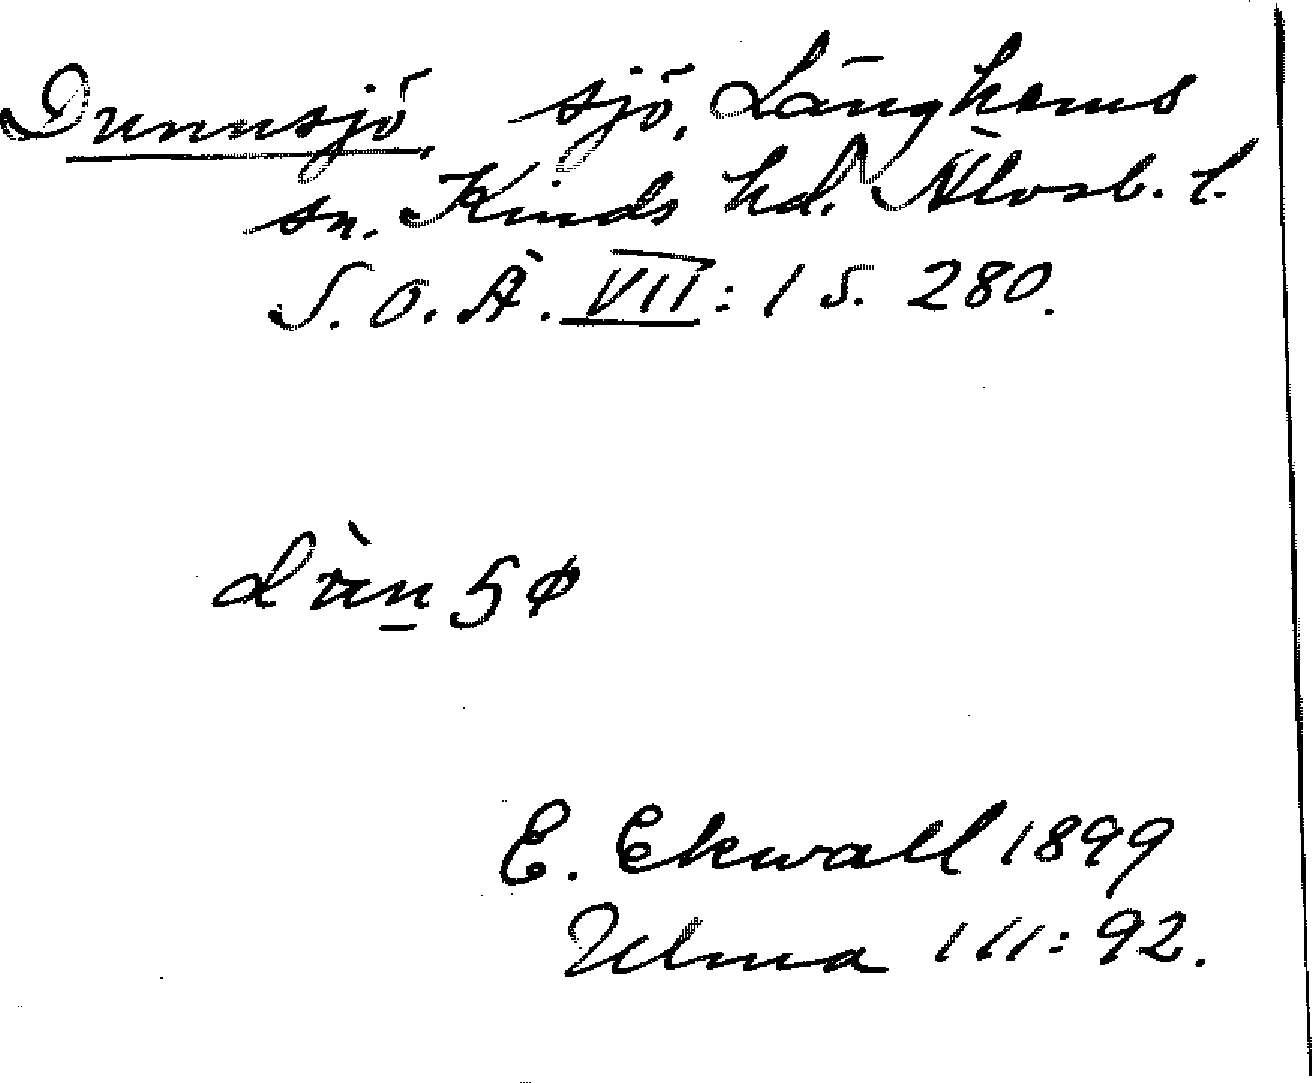 Dunnsjö, sjö, Länghems
sn. Kinds hd. Älvsb. l.
S. O. Ä. VII: 1 s. 280.
E. Ekwall 1899
Ulma 111: 92.